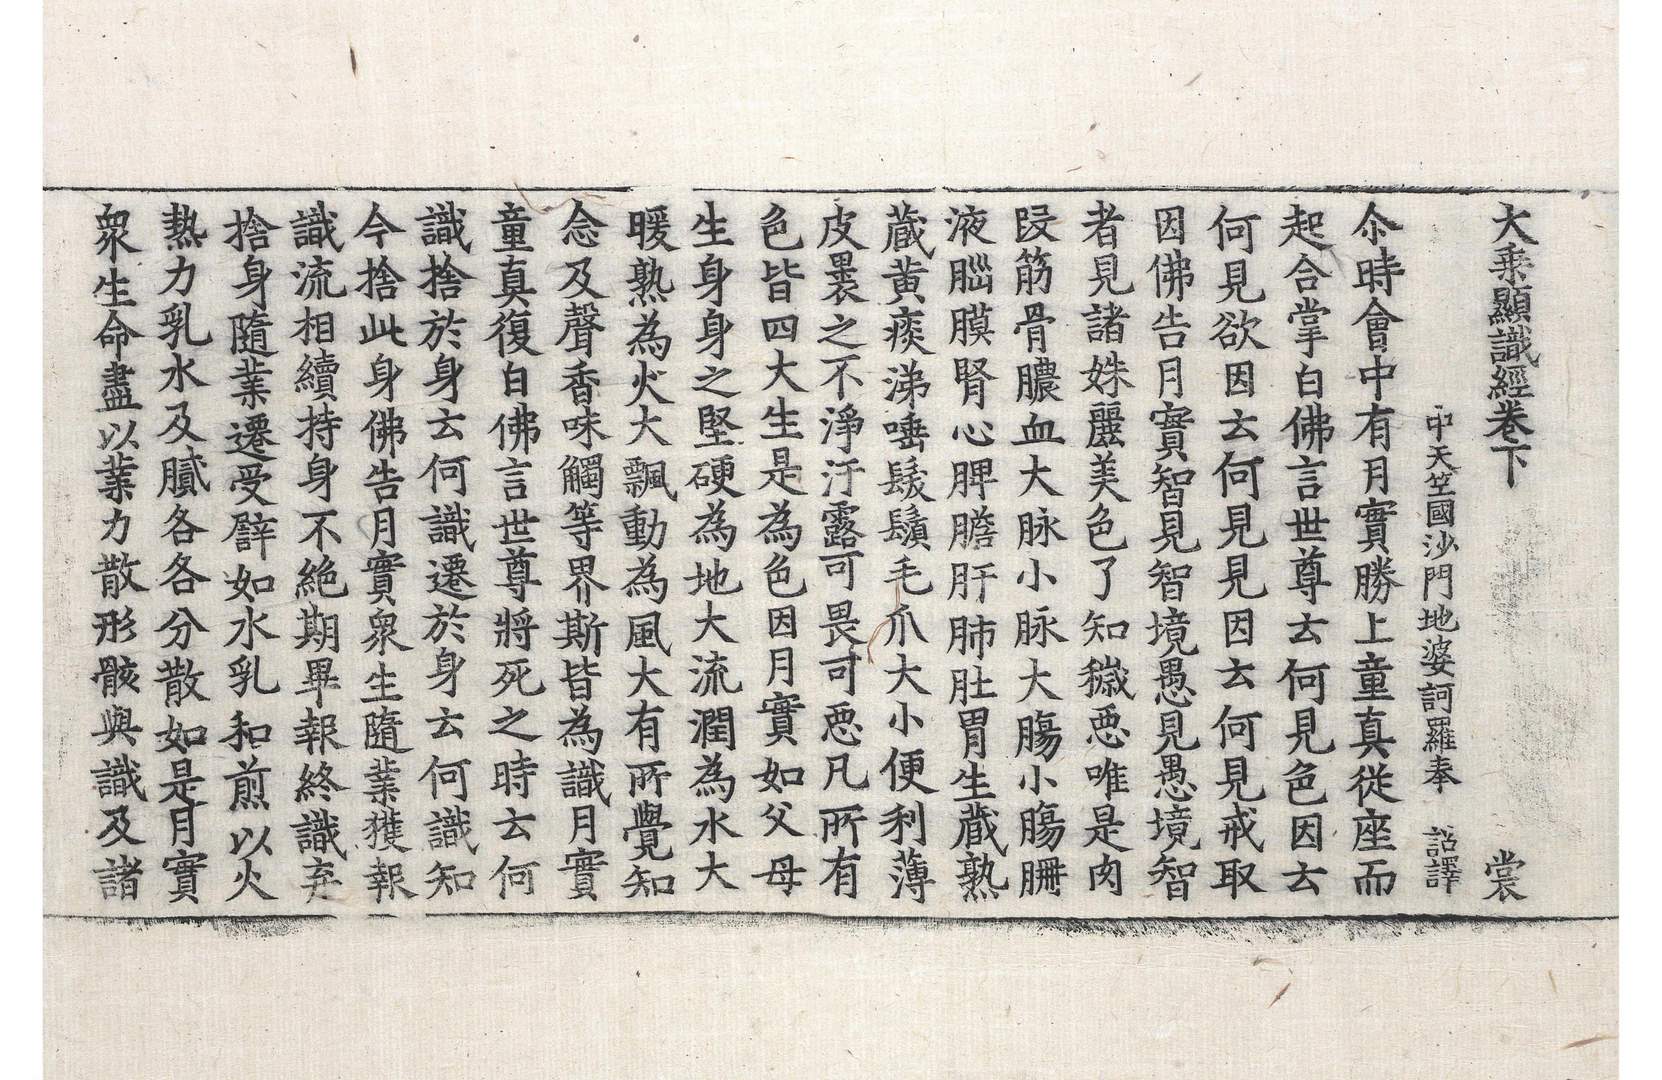 大乘顯識經卷下 裳
中天竺國沙門地婆訶羅奉 詔譯
尒時會中有月實勝上童真從座而
起合掌白佛言世尊云何見色因云
何見欲因云何見見因云何見戒取
因佛告月實智見智境愚見愚境智
者見諸姝麗美色了知穢惡唯是肉
段筋骨膿血大脉小脉大膓小膓𦙱
液腦膜腎心脾膽肝肺肚胃生蔵熟
蔵黄痰涕唾髮鬚毛爪大小便利薄
皮褁之不淨汙露可畏可惡凡所有
色皆四大生是為色因月實如父母
生身身之堅硬為地大流潤為水大
暖熟為火大飄動為風大有所覺知
念及聲香味觸等界斯皆為識月實
童真復白佛言世尊將死之時云何
識捨於身云何識遷於身云何識知
今捨此身佛告月實衆生隨業獲報
識流相續持身不絶期畢報終識弃
捨身隨業遷受辟如水乳和煎以火
熱力乳水及膩各各分散如是月實
衆生命盡以業力散形骸與識及諸